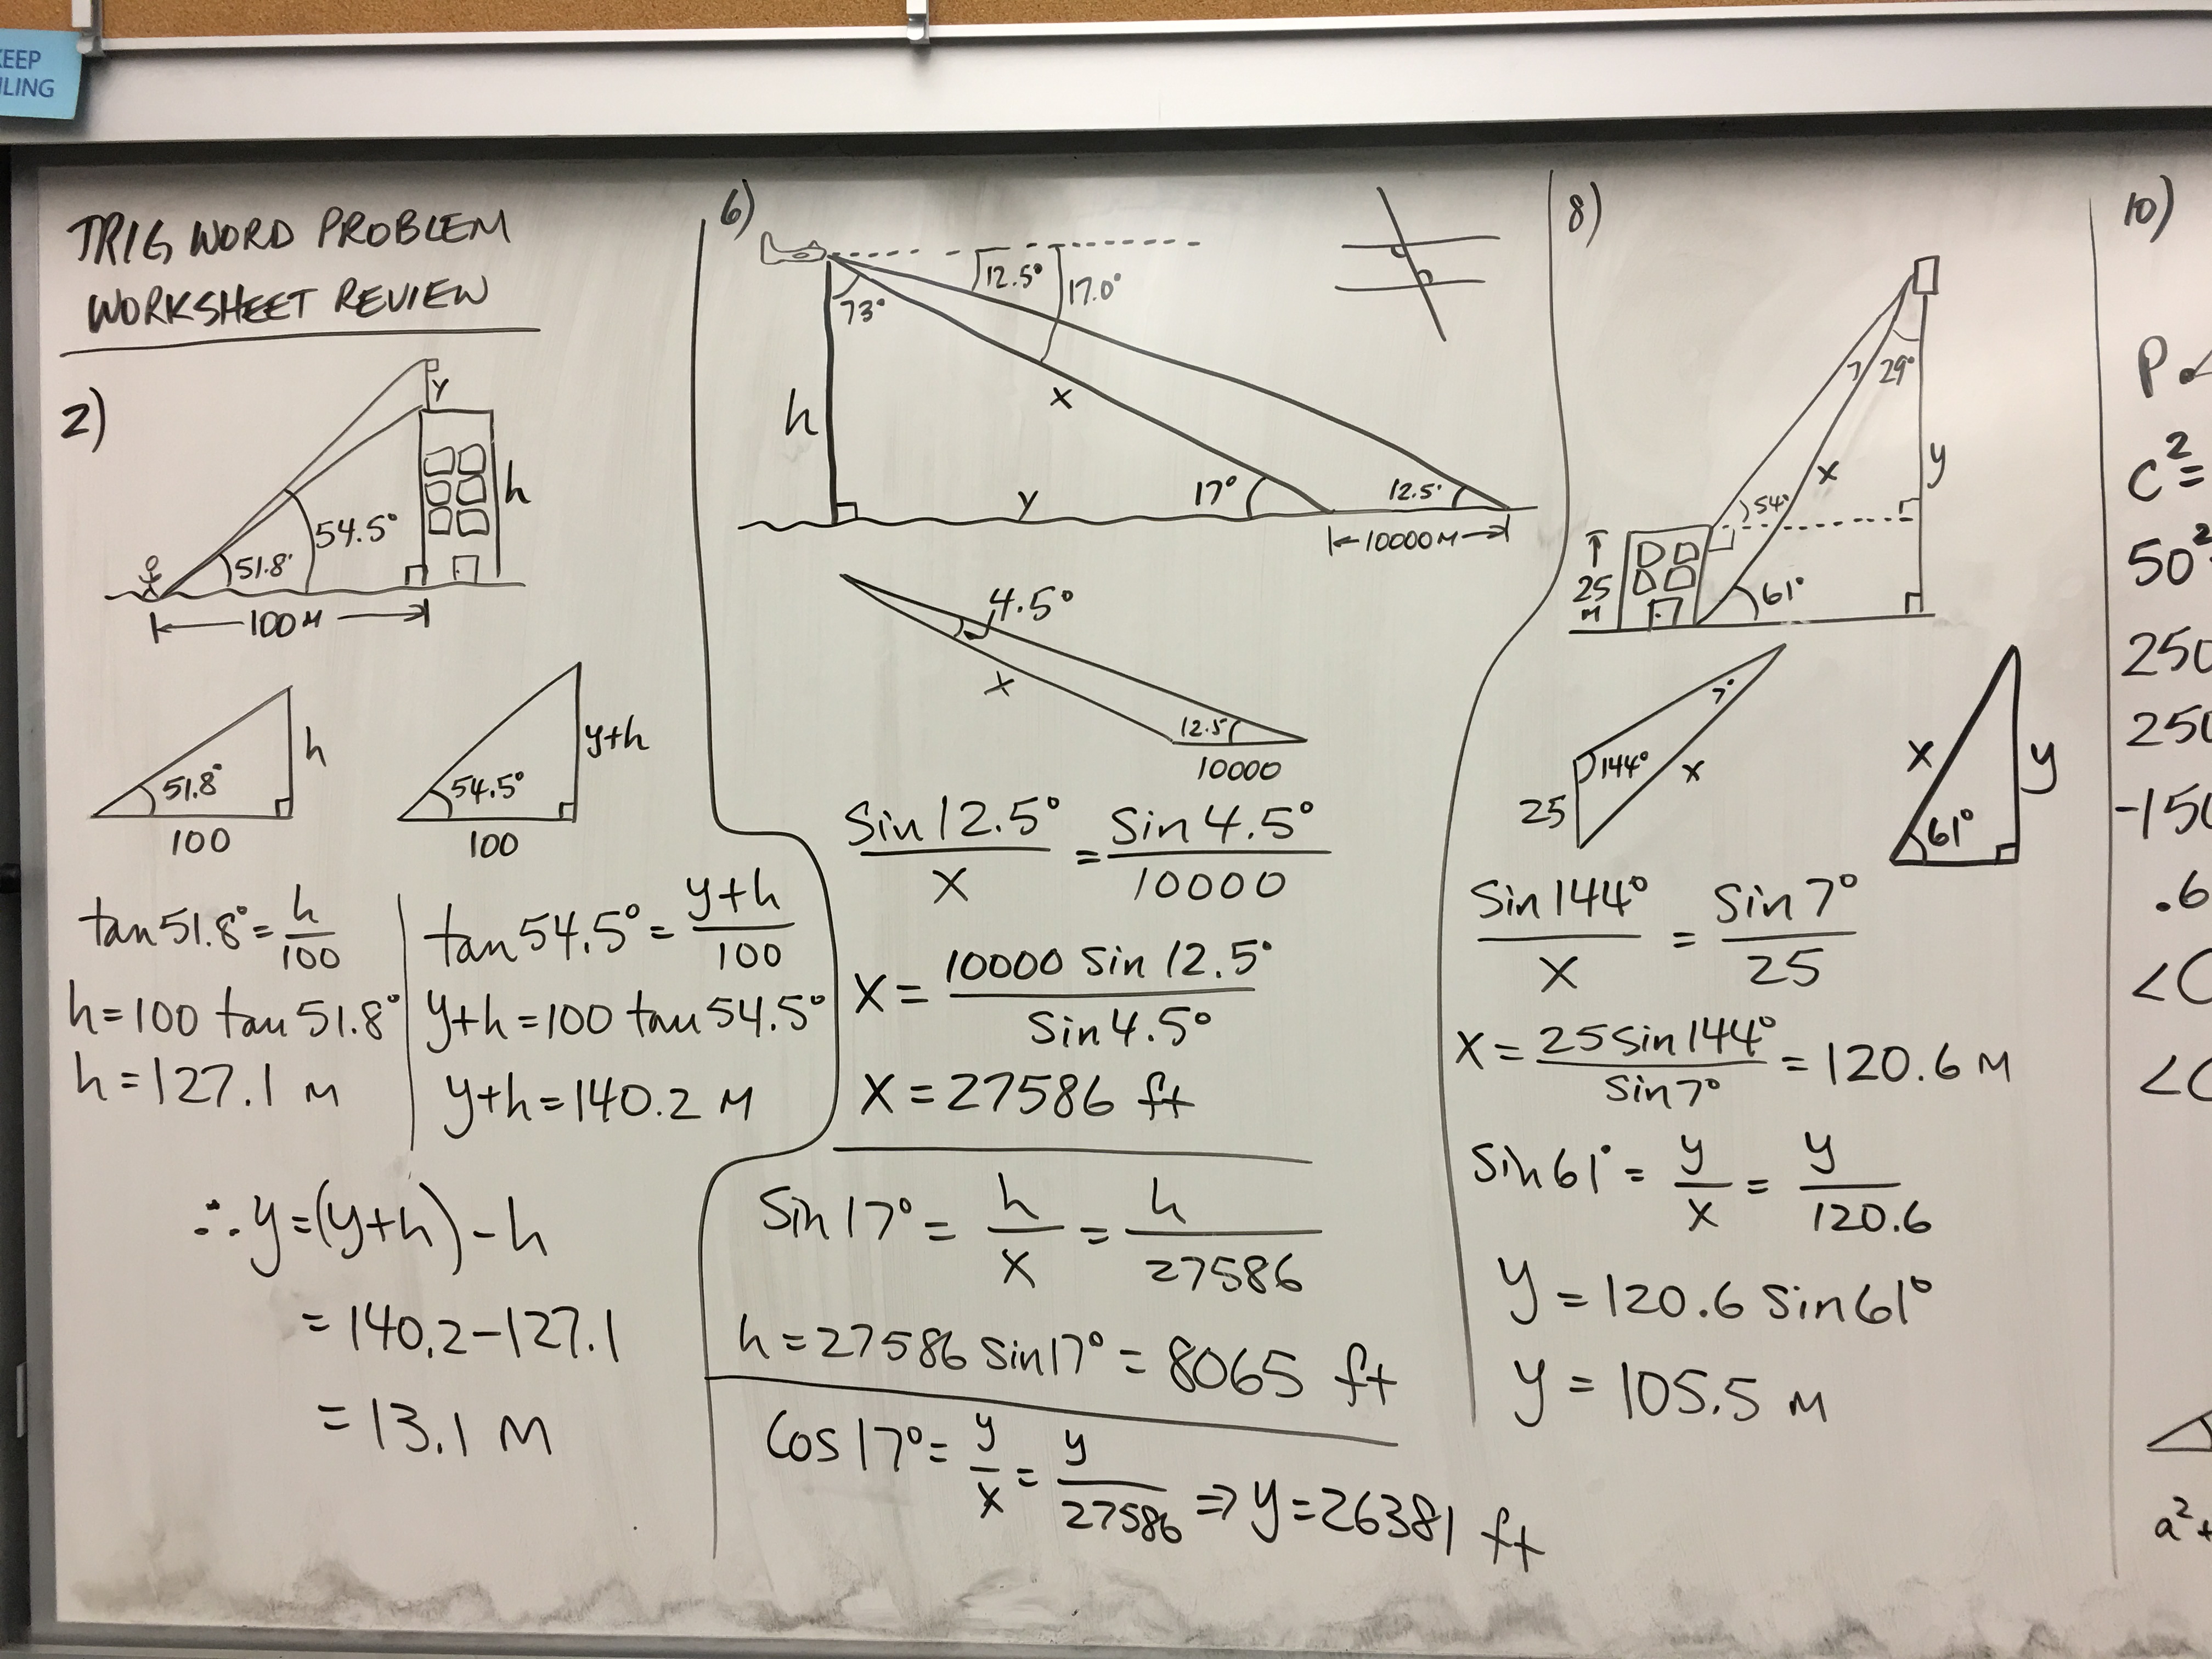 KEEP
ILING
TRIG WORD PROBLEM
WORKSHEET REVIEW
2)
y
h
54.5°
51.8°
100 M
51.8°
h
100
54.5°
y+h
100
tan 51.8° = h/100
h = 100 tan 51.8°
h = 127.1 M
tan 54.5° = y+h/100
y+h = 100 tan 54.5°
y+h = 140.2 M
∴ y = (y+h) - h
= 140.2 - 127.1
= 13.1 M
6)
12.5°
17.0°
73°
h
x
y
17°
12.5°
10000 M
4.5°
x
12.5
10000
Sin 12.5°/x = Sin 4.5°/10000
x = 10000 Sin 12.5°/Sin 4.5°
x = 27586 ft
Sin 17° = h/x = h/27586
h = 27586 Sin 17° = 8065 ft
Cos 17° = y/x = y/27586 ⇒ y = 26381 ft
8)
7
29°
x
y
54°
25
M
61°
7°
144°
x
25
x
y
61°
Sin 144°/x = Sin 7°/25
x = 25 Sin 144°/Sin 7° = 120.6 M
Sin 61° = y/x = y/120.6
y = 120.6 Sin 61°
y = 105.5 M
10)
P
c² =
50²
250
250
-150
.6
<C
<C
a² +